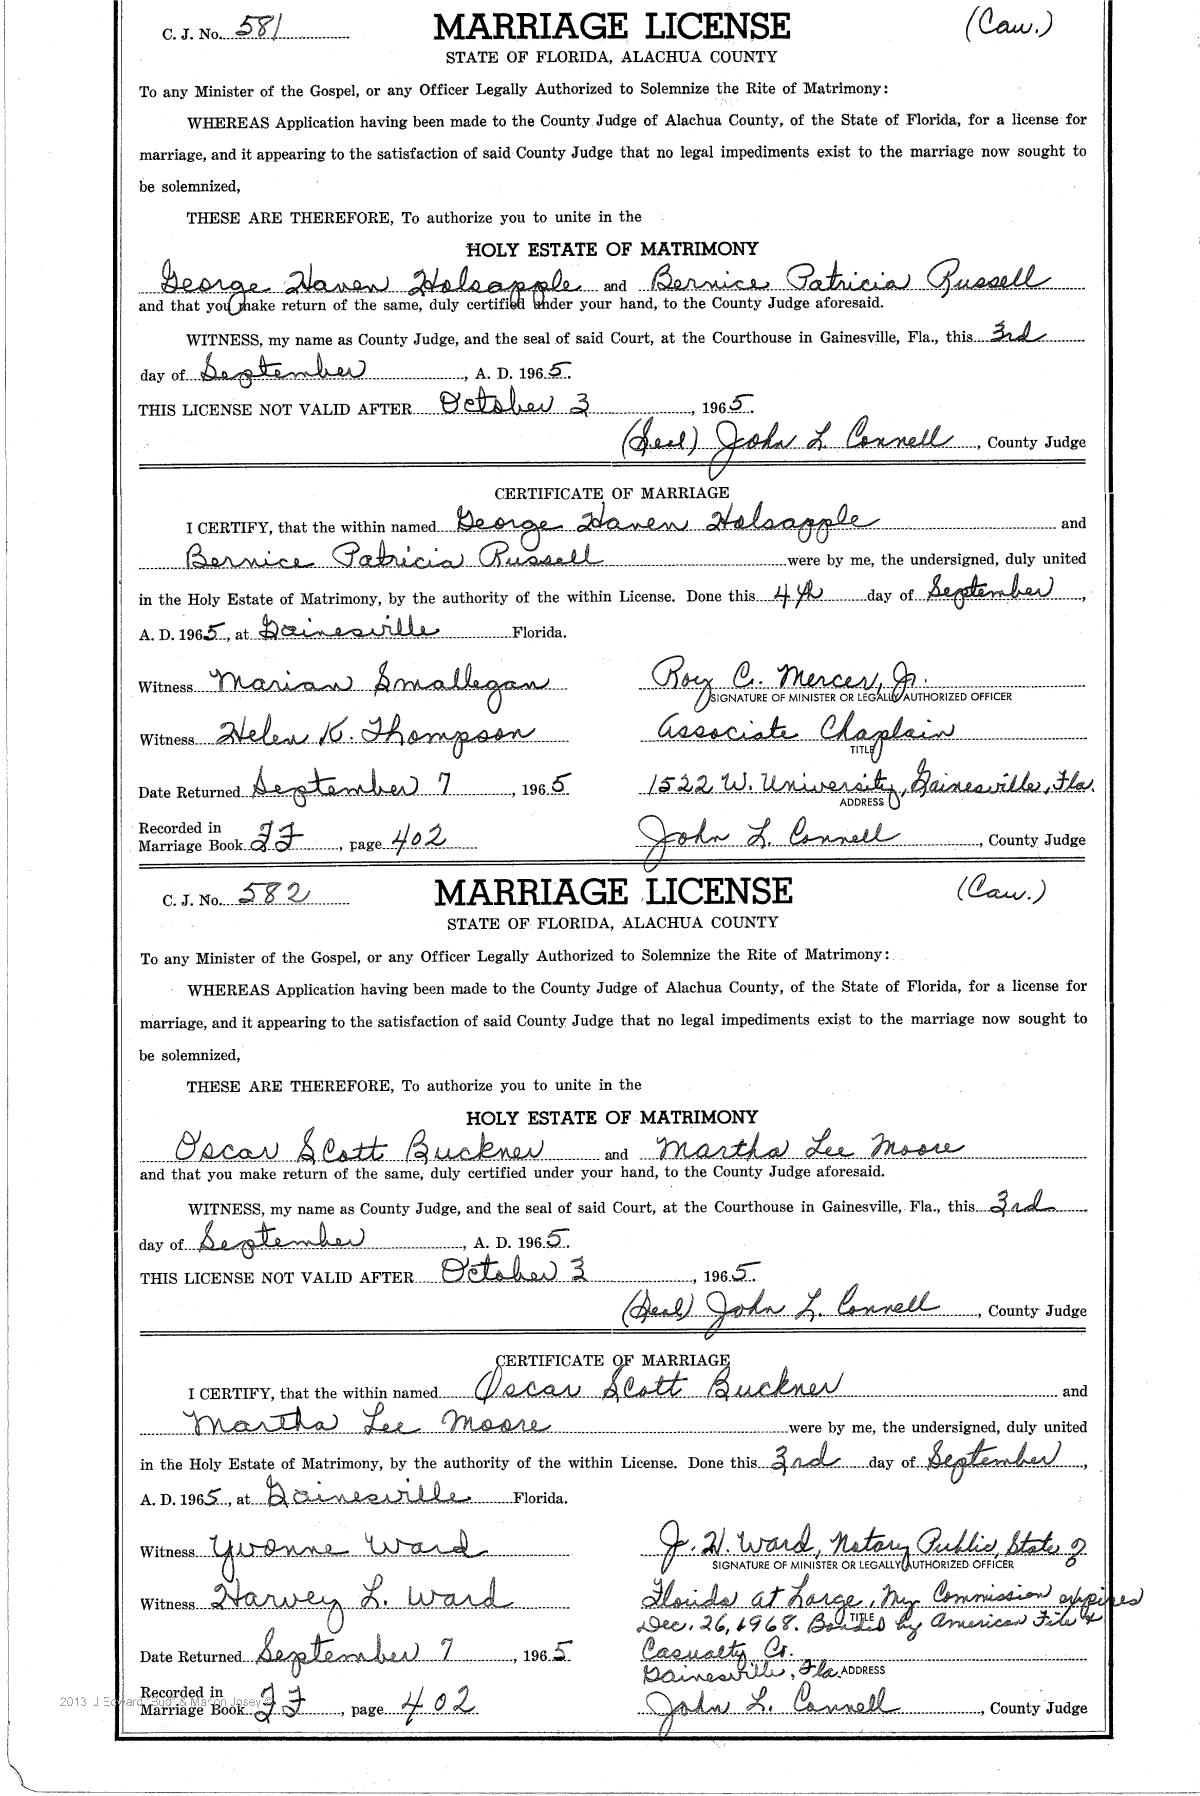 C. J. No. 581 MARRIAGE LICENSE (Cau.)
STATE OF FLORIDA, ALACHUA COUNTY
To any Minister of the Gospel, or any Officer Legally Authorized to Solemnize the Rite of Matrimony:
WHEREAS Application having been made to the County Judge of Alachua County, of the State of Florida, for a license for
marriage, and it appearing to the satisfaction of said County Judge that no legal impediments exist to the marriage now sought to
be solemnized,
THESE ARE THEREFORE, To authorize you to unite in the
HOLY ESTATE OF MATRIMONY
George Haven Holsapple and Bernice Patricia Russell
and that you make return of the same, duly certified under your hand, to the County Judge aforesaid.
WITNESS, my name as County Judge, and the seal of said Court, at the Courthouse in Gainesville, Fla., this 3rd
day of September, A. D. 1965.
THIS LICENSE NOT VALID AFTER October 3, 1965.
(Seal) John L Connell, County Judge
CERTIFICATE OF MARRIAGE
I CERTIFY, that the within named George Haven Holsapple and
Bernice Patricia Russell were by me, the undersigned, duly united
in the Holy Estate of Matrimony, by the authority of the within License. Done this 4th day of September,
A. D. 1965, at Gainesville Florida.
Witness Marian Smallegan Roy C. Mercer, Jr.
SIGNATURE OF MINISTER OR LEGALLY AUTHORIZED OFFICER
Witness Helen K. Thompson Associate Chaplain
TITLE
Date Returned September 7, 1965 1522 W. University, Gainesville, Fla.
ADDRESS
Recorded in
Marriage Book FF, page 402 John L. Connell, County Judge
C. J. No. 582 MARRIAGE LICENSE (Cau.)
STATE OF FLORIDA, ALACHUA COUNTY
To any Minister of the Gospel, or any Officer Legally Authorized to Solemnize the Rite of Matrimony:
WHEREAS Application having been made to the County Judge of Alachua County, of the State of Florida, for a license for
marriage, and it appearing to the satisfaction of said County Judge that no legal impediments exist to the marriage now sought to
be solemnized,
THESE ARE THEREFORE, To authorize you to unite in the
HOLY ESTATE OF MATRIMONY
Oscar Scott Buckner and Martha Lee Moore
and that you make return of the same, duly certified under your hand, to the County Judge aforesaid.
WITNESS, my name as County Judge, and the seal of said Court, at the Courthouse in Gainesville, Fla., this 3rd
day of September, A. D. 1965.
THIS LICENSE NOT VALID AFTER October 3, 1965.
(Seal) John L. Connell, County Judge
CERTIFICATE OF MARRIAGE
I CERTIFY, that the within named Oscar Scott Buckner and
Martha Lee Moore were by me, the undersigned, duly united
in the Holy Estate of Matrimony, by the authority of the within License. Done this 3rd day of September,
A. D. 1965, at Gainesville Florida.
Witness Yvonne Ward J. H. Ward, Notary Public, State of
SIGNATURE OF MINISTER OR LEGALLY AUTHORIZED OFFICER
Witness Harvey L. Ward Florida at Large, My Commission expires
Dec. 26, 1968. Bonded by American Fire &
TITLE
Casualty Co.
Date Returned September 7, 1965
Gainesville, Fla. ADDRESS
Recorded in
Marriage Book FF, page 402 John L. Connell, County Judge
2013 J Edward "Bud" & Marion Josey